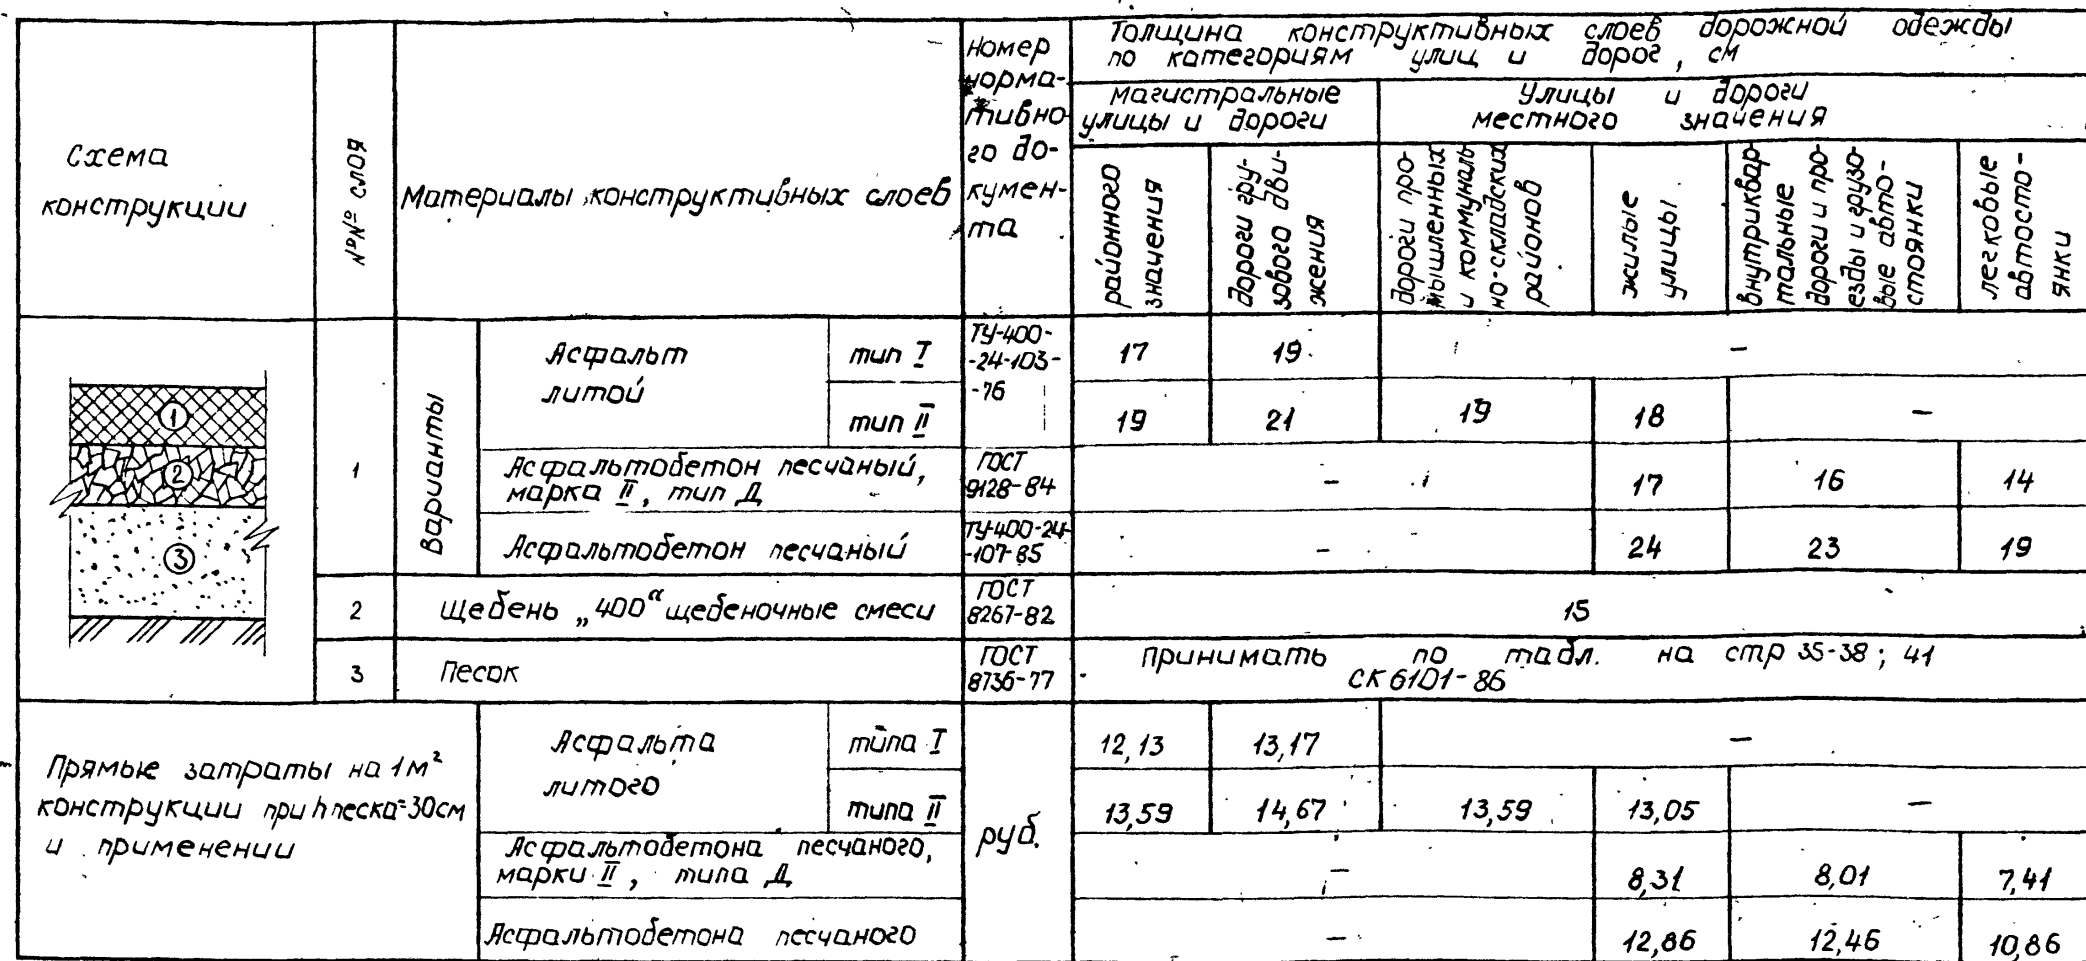 Схема
конструкции
№№ слоя
Материалы конструктивных слоев
Номер
норма-
тивно
го до-
кумен-
та
Толщина конструктивных слоев дорожной одежды
по категориям улиц и дорог, см
Магистральные
улицы и дороги
Улицы и дороги
местного значения
районного
значения
дороги гру-
зового дви-
жения
дороги про-
мышленных
и коммуналь
но-складских
районов
жилые
улицы
внутриквар
тальные
дороги и про-
езды и грузо-
вые авто-
стоянки
легковые
автосто-
янки
1
2
3
1
Варианты
Асфальт
литой
тип I
ТУ-400-
-24-103-
-76
17 19 -
тип II
19 21 19 18 -
Асфальтобетон песчаный,
марка II, тип Д
ГОСТ
9128-84
- 17 16 14
Асфальтобетон песчаный
ТУ-400-24-
-107-85
- 24 23 19
2 Щебень „400“ щебеночные смеси
ГОСТ
8267-82
15
3 Песок
ГОСТ
8736-77
принимать по табл. на стр 35-38; 41
СК 6101-86
Прямые затраты на 1м²
конструкции при h песка=30см
и применении
Асфальта
литого
типа I
руб.
12,13 13,17 -
типа II
13,59 14,67 13,59 13,05 -
Асфальтобетона песчаного,
марки II, типа Д
- 8,31 8,01 7,41
Асфальтобетона песчаного
- 12,86 12,46 10,86